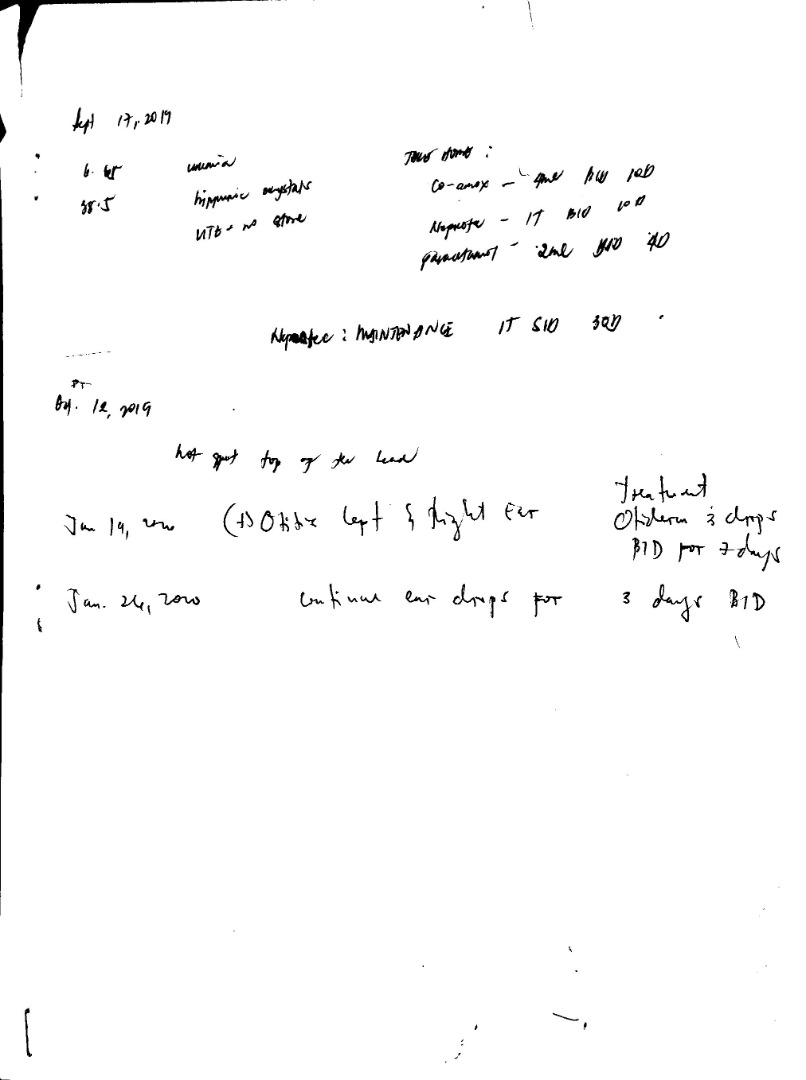 Sept 17, 2019
6.65
38.5
hippuric crystals
UTZ - no stone
TAKE HOME :
Co-amox - 4ml BID 10D
- 1T BID 10D
paracetamol - 2ml BID 4D
: MAINTENANCE 1T SID 30D
Oct. 12, 2019
hot spot top of the head
Jan 19, 2020 (+) Otitis left & Right Ear
Treatment
Otiderm 3 drops
BID for 7 days
Jan. 26, 2020 Continue ear drops for 3 days BID